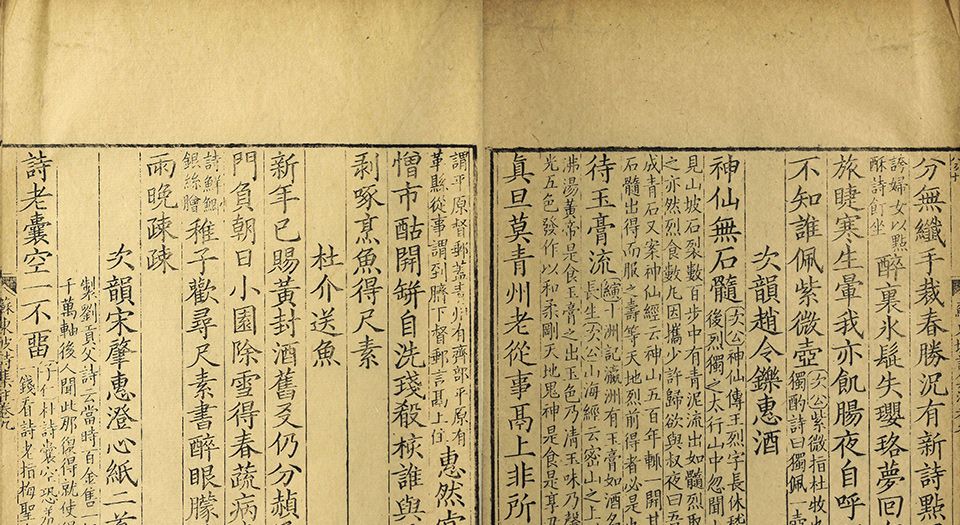 分無纖手裁春勝況有新詩點
誇婦女以點
酥詩飣坐
醉裏氷髭失瓔珞夢回
旅睫寒生暈我亦飢腸夜自呼
不知誰佩紫微壺
次公紫微指杜牧
獨酌詩曰獨佩一壺
次韻趙令鑠惠酒
神仙無石髓
次公神仙傳王烈字長休嵇
後烈獨之太行山中忽聞山
見山坡石裂數百步中有青泥流出如髓烈取
之亦然烈食數凡因攜少許歸欲與叔夜曰吾
成青石又案神仙經云神山五百年輒一開其
石髓出得而服之壽等天地烈前得者必是
待玉膏流
縯十洲記瀛洲有玉膏如酒名
長生次公山海經云密山之上
沸湯黃帝是食玉膏之出玉色乃清玉味乃馨
光五色發作以和柔剛天地鬼神是食是享
真旦莫青州老從事高上非所
謂平原督郵蓋青州有齊郡平原有
革縣從事謂到臍下督郵言鬲上住
惠然
憎市酤開缾自洗琖殽核誰與
剥啄烹魚得尺素
杜介送魚
新年已賜黃封酒舊友仍分赬
門負朝日小園除雪得春蔬病
詩鮮鯽
銀絲鱠
稚子歡尋尺素書醉眼朦
雨晚疎疎
次韻宋肇惠澄心紙二首
製劉貢父詩云當時百金售一
千萬軸後人聞此那復得就使
詩老囊空一不留
子仁朴詩囊空恐羞
錢看詩老指梅聖
蘇東坡詩集註卷九